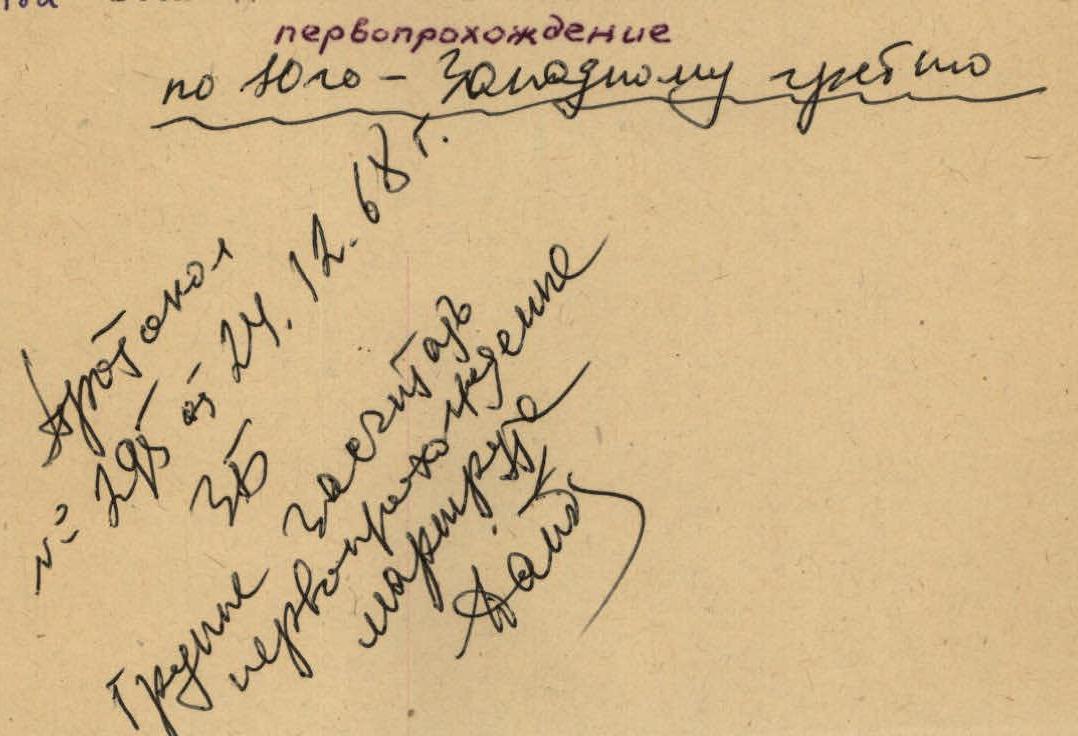 первопрохождение
по Юго - Западному гребню
Протокол
№ 295 от 24.12.68 г.
3Б
Группе засчитать
первопрохождение
маршрута